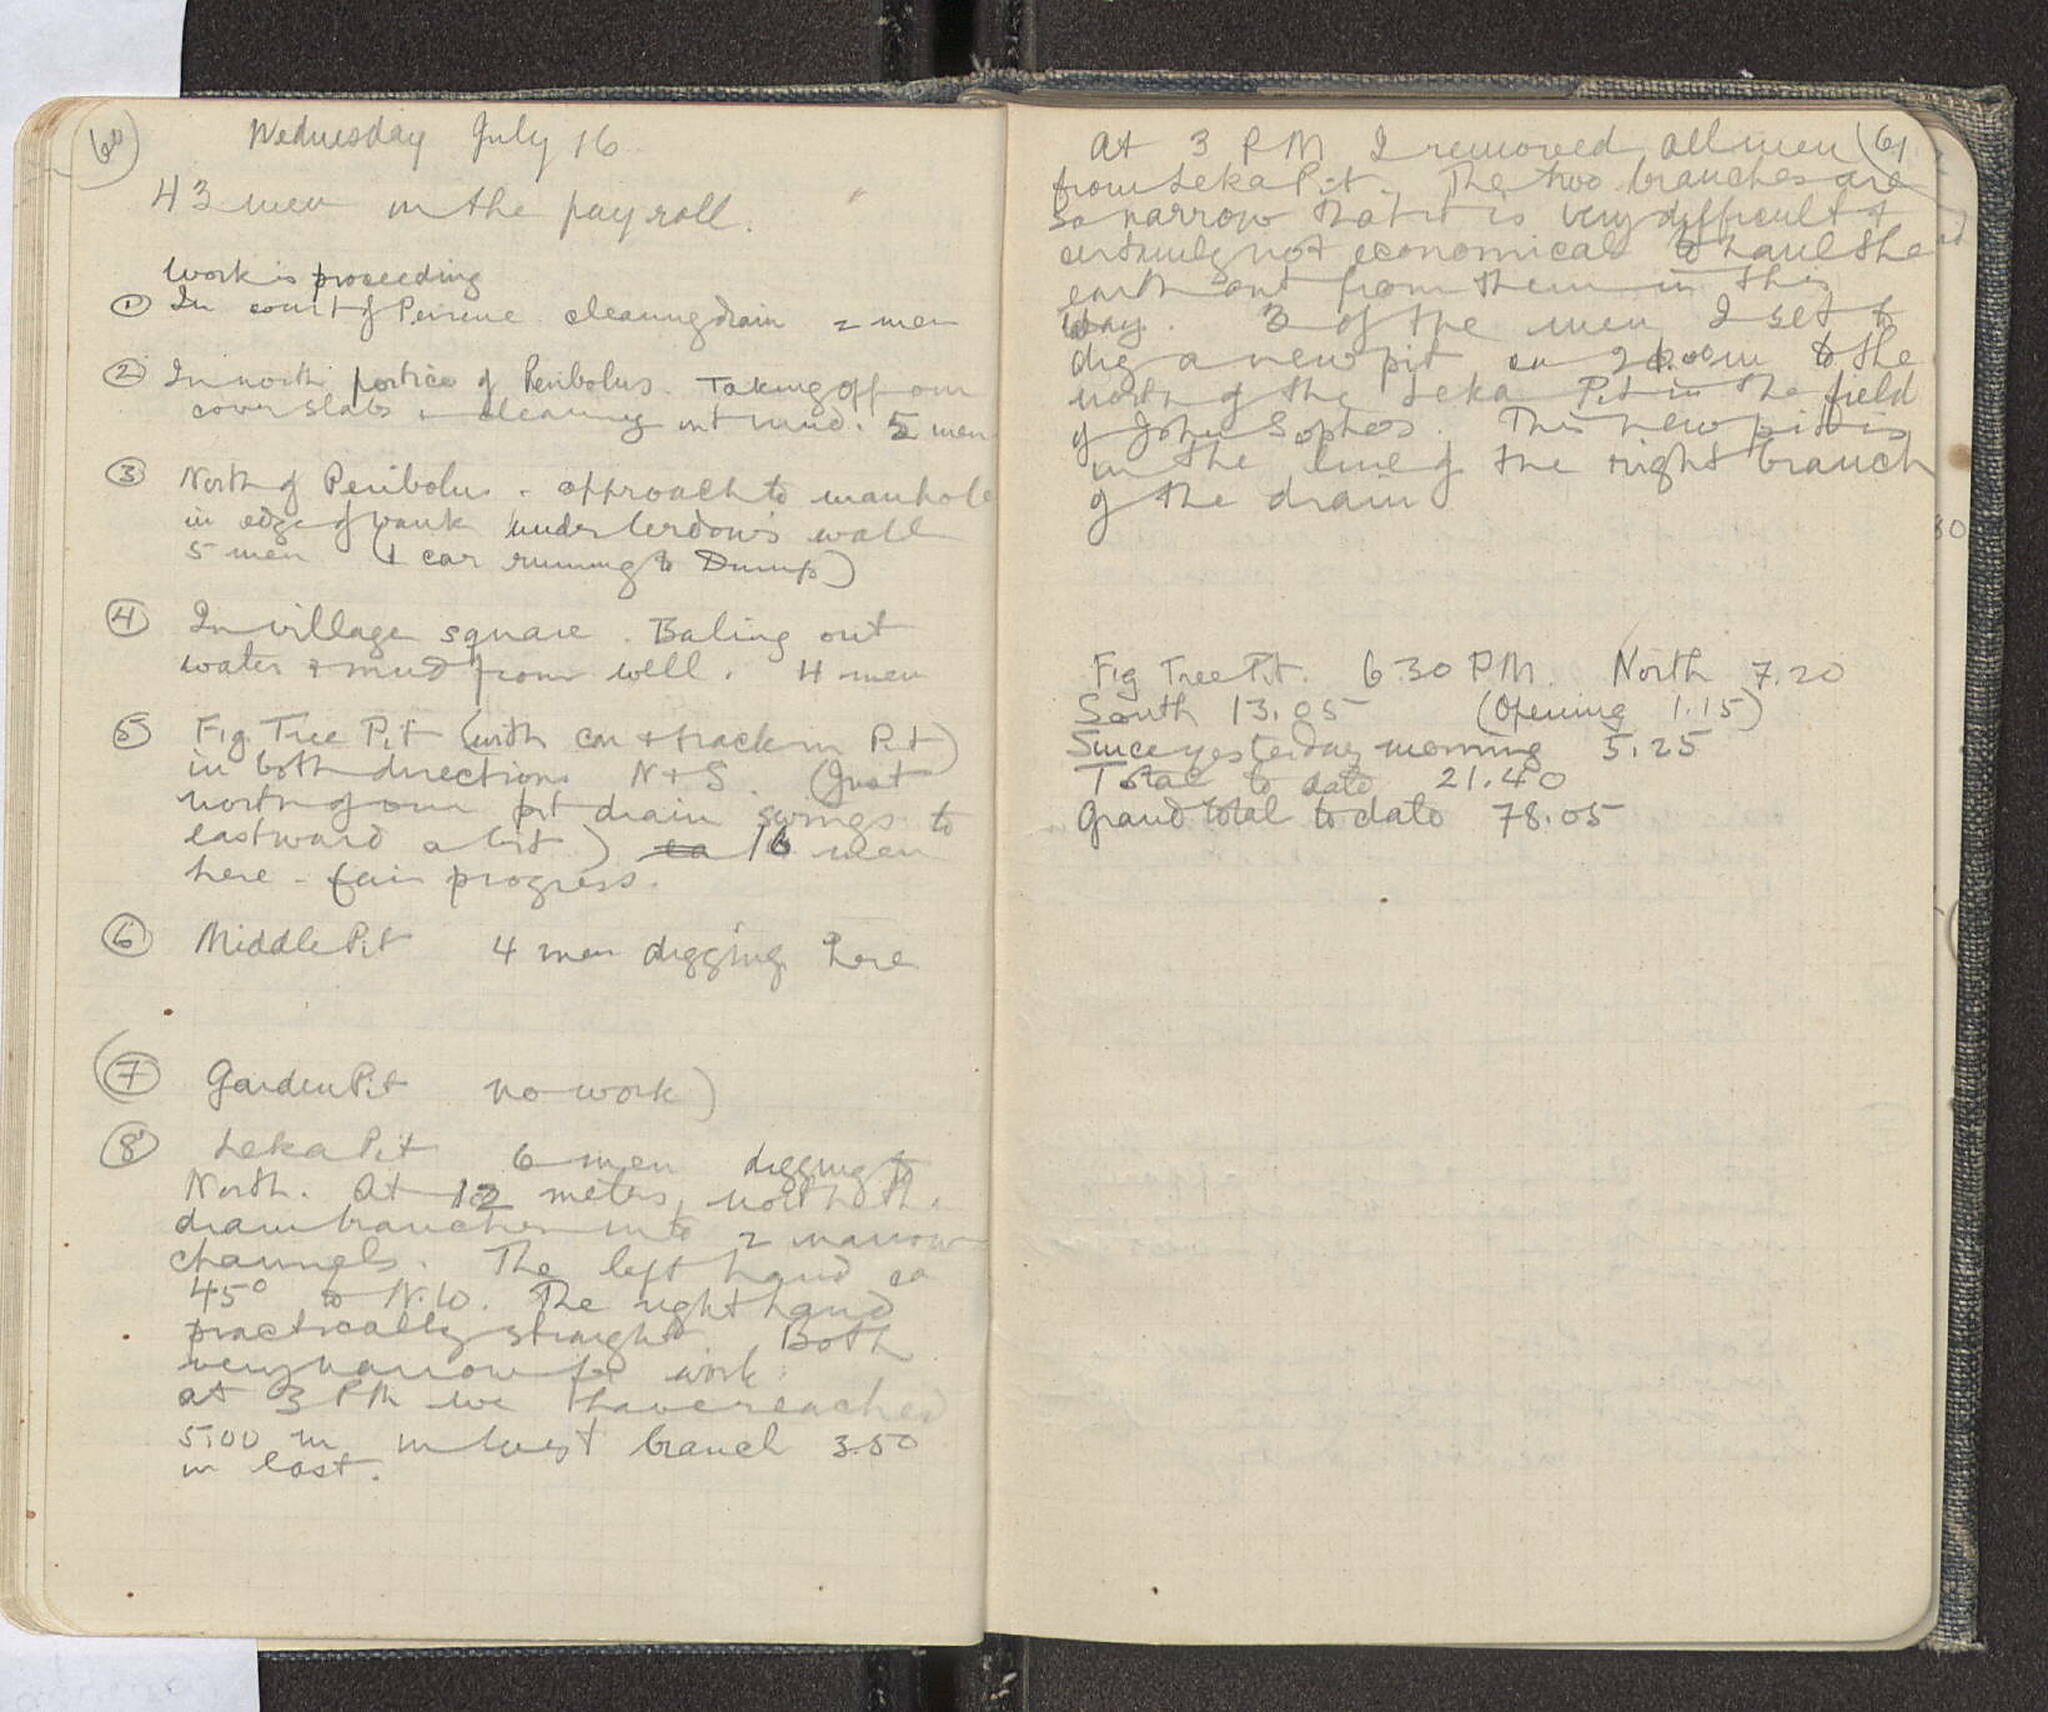 60
Wednesday July 16
43 men on the payroll.
Work is proceeding
① In court of Peirene cleaning drain 2 men
② In north portico of Peribolus. Taking off our
cover slabs + cleaning out mud. 5 men
③ North of Peribolus - approach to manhole
in edge of bank under Lerdow's wall
5 men (1 car running to Dump)
④ In village square. Baling out
water + mud from well. 4 men
⑤ Fig Tree Pit (with car + track in Pit)
in both directions N + S. (Just
north of our pit drain swings to
eastward a bit) 16 men
here - fair progress.
⑥ Middle Pit 4 men digging here
(⑦ Garden Pit no work)
⑧ Leka Pit 6 men digging to
North. At 12 meters north th.
drain branches into 2 narrow
channels. The left hand ca
45° to N.W. The right hand
practically straight. Both
very narrow for work.
at 3 PM we have reached
5.00 m in West branch 3.50
in East.
61
At 3 PM I removed all men
from Leka Pit. The two branches are
so narrow that it is very difficult +
certainly not economical to haul the
earth out from them in this
way. 3 of the men I set to
dig a new pit ca m to the
north of the Leka Pit in the field
of John Sophos. This new pit is
in the line of the right branch
of the drain
Fig Tree Pit. 6 30 PM. North 7.20
South 13.05 (Opening 1.15)
Since yesterday morning 5.25
Total to date 21.40
Grand total to date 78.05